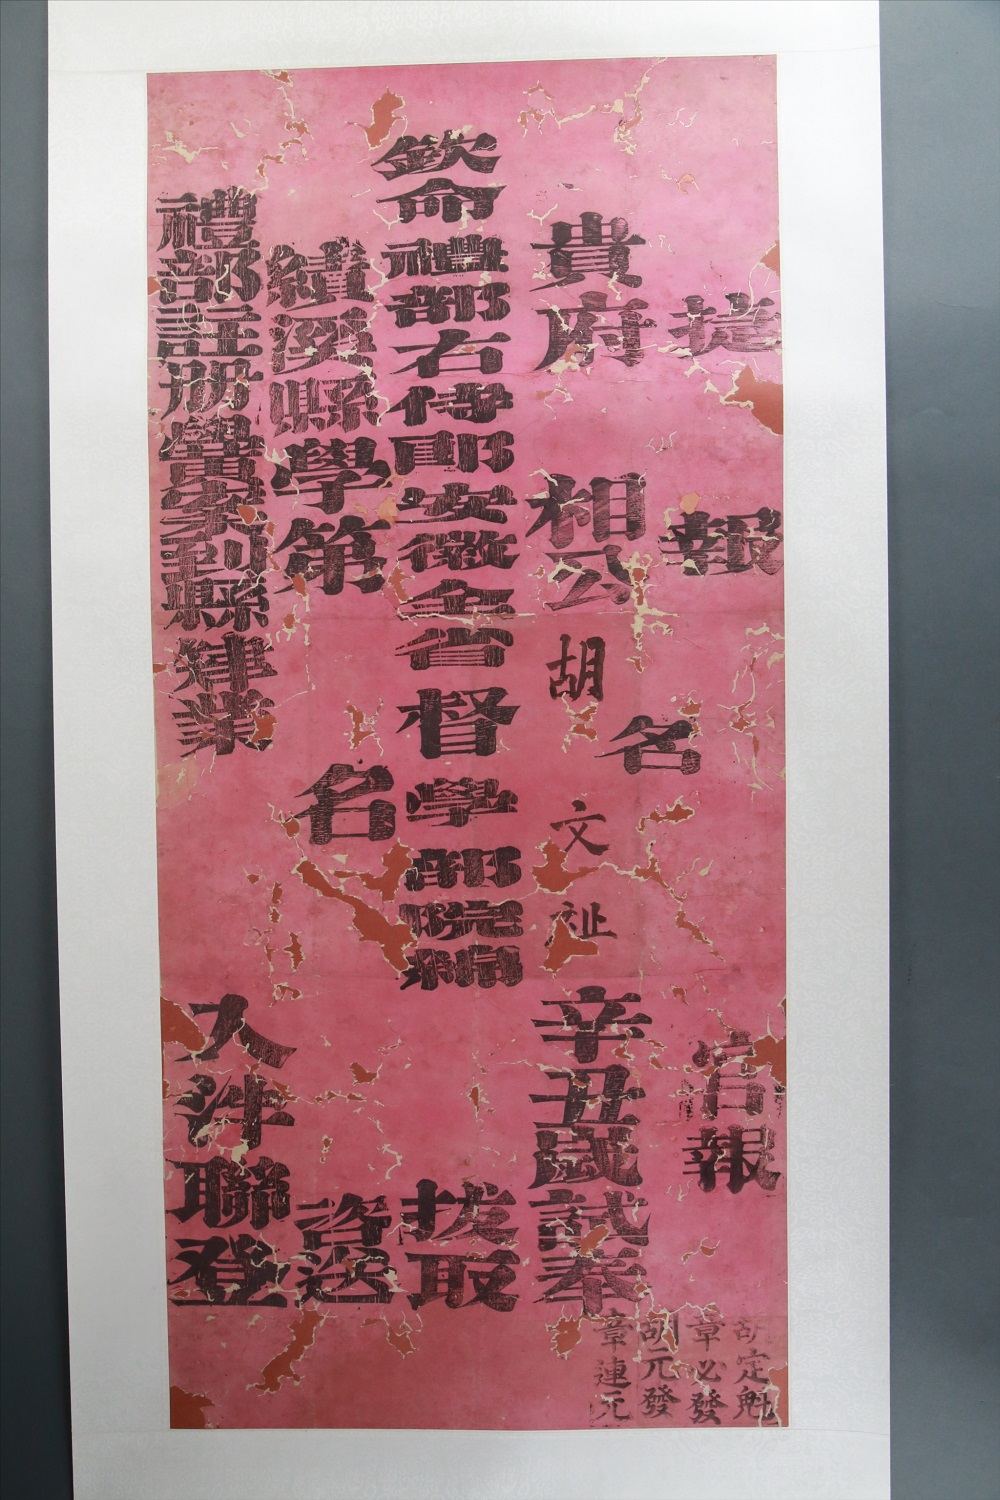 捷報
貴府相公胡
名
文祉辛丑歲試奉
欽命禮部右侍郎安徽全省督學部院綿
拔取
績溪縣學第
名
咨送
禮部註册學案到縣肄業
入泮聯登
官報
胡定魁
章必發
胡元發
章連元